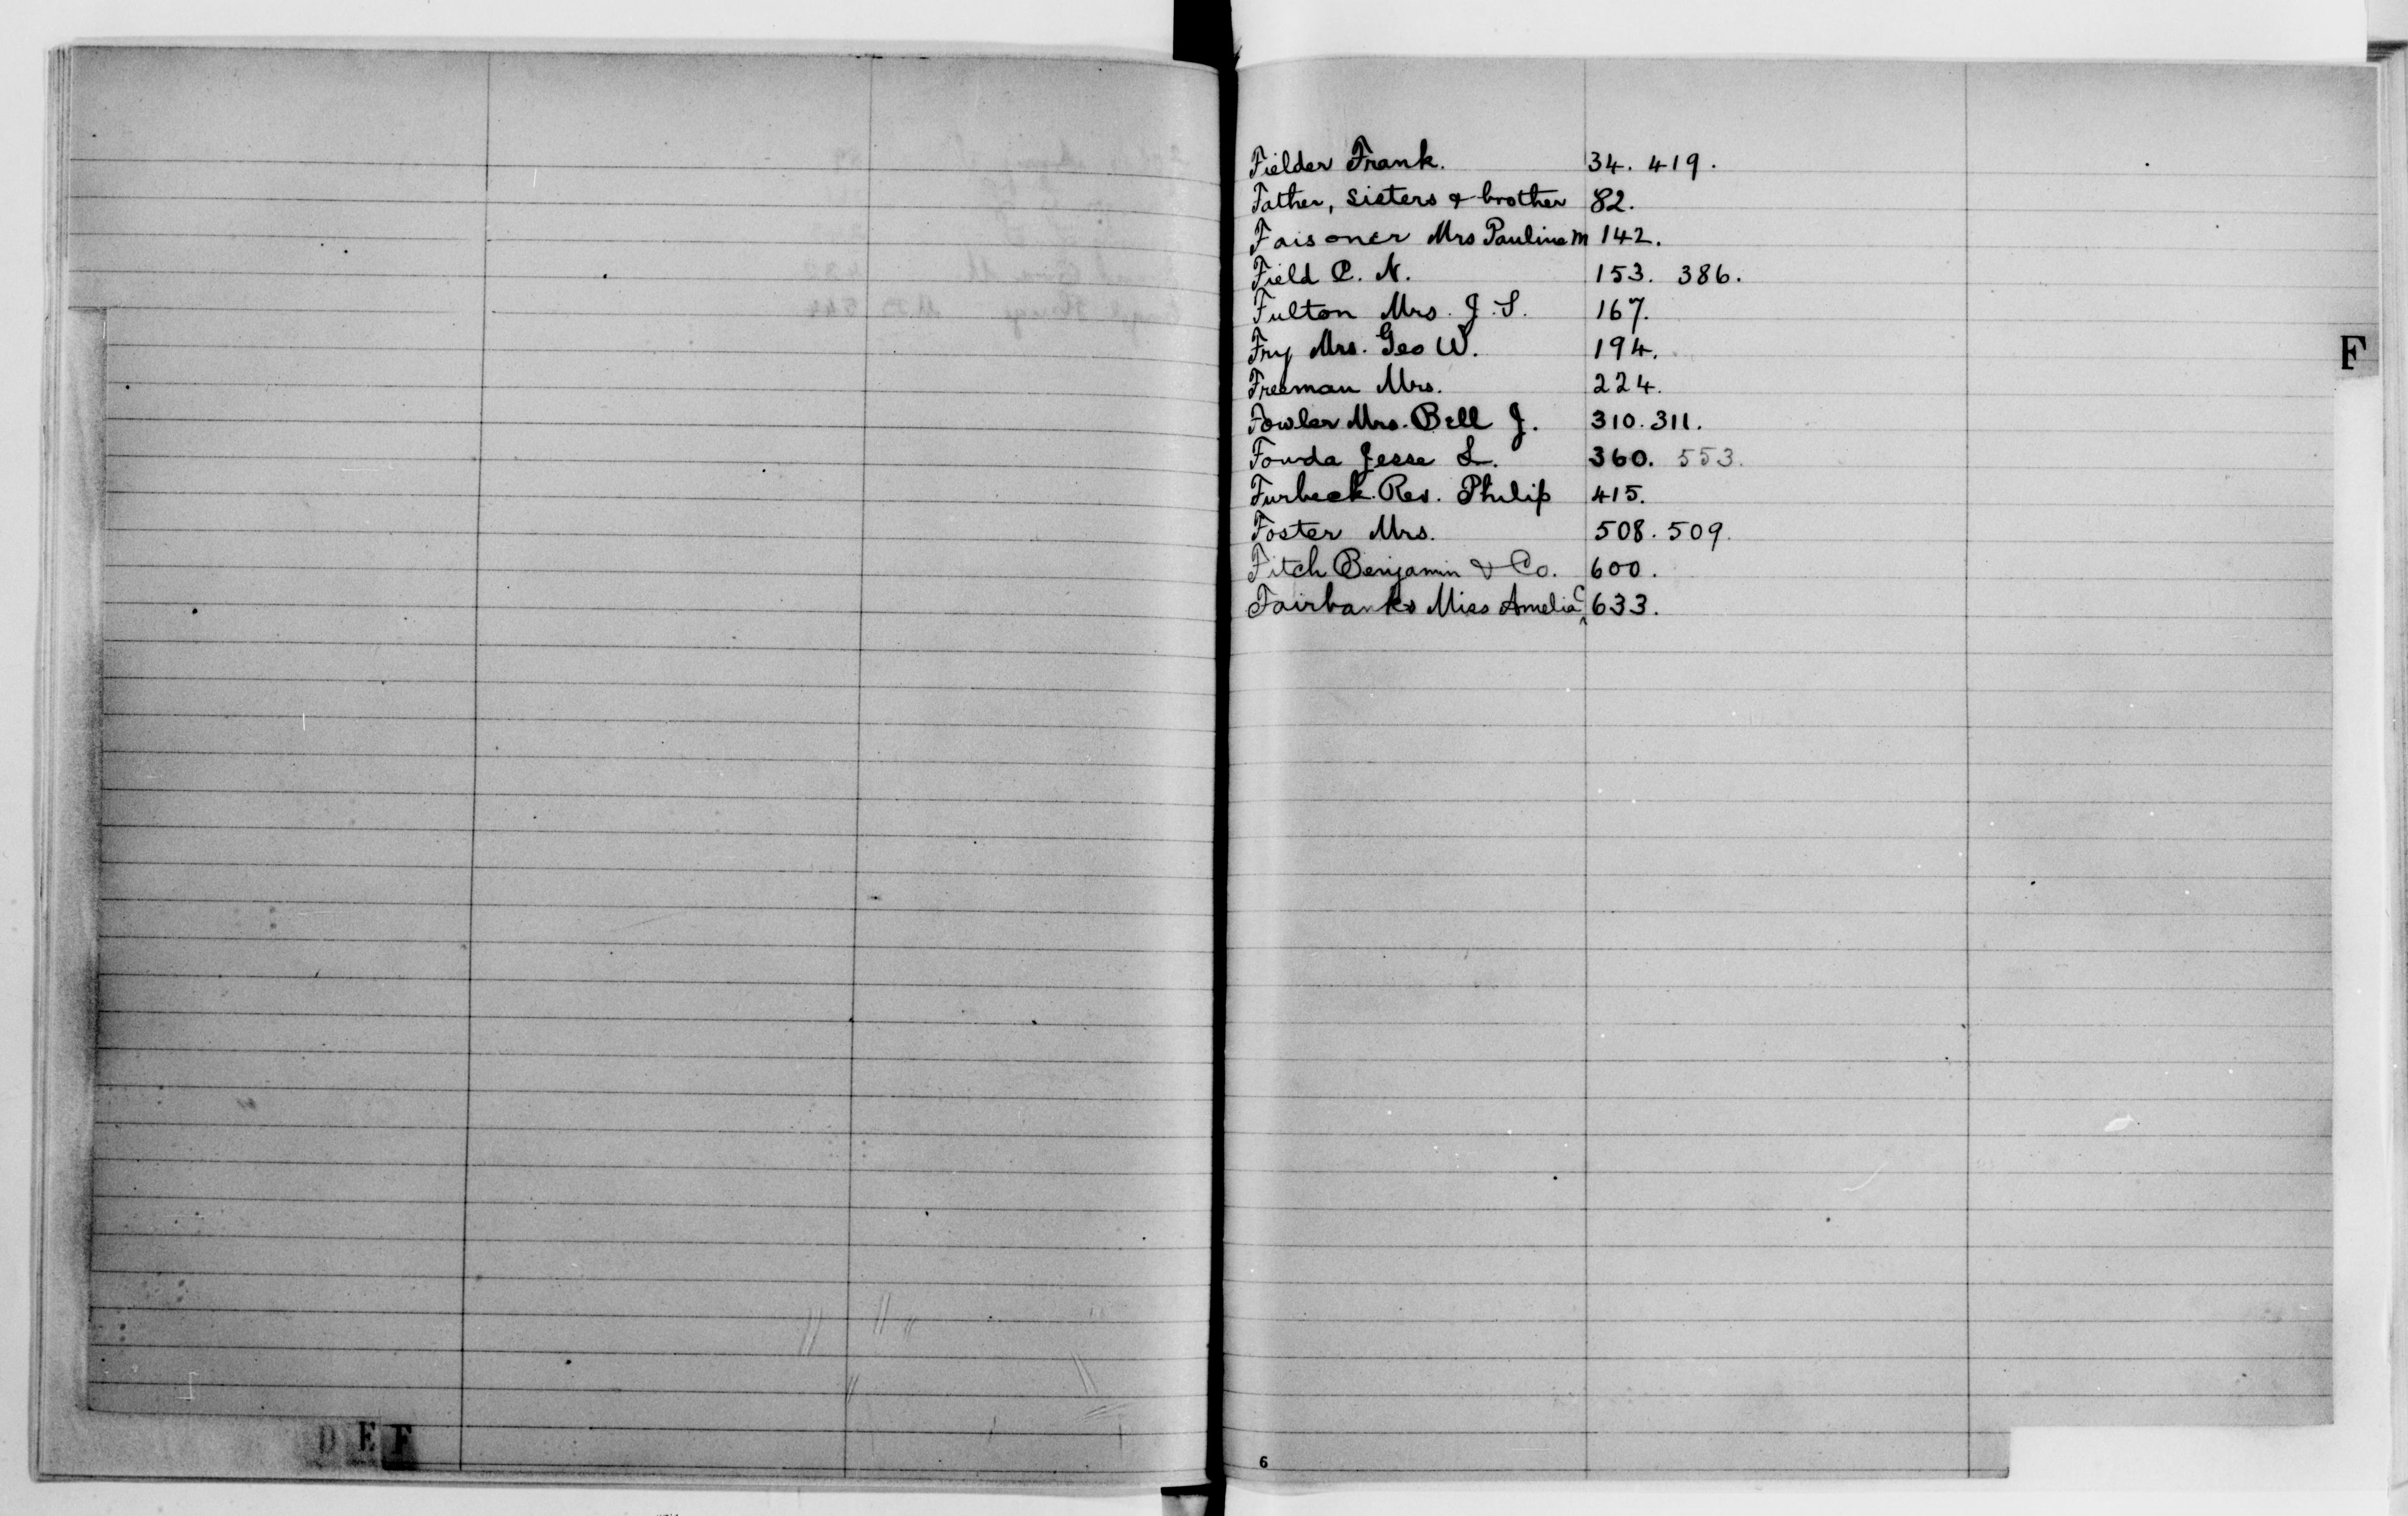 Fielder Frank. 34. 419.
Father, sisters & brother 82.
Faisoner Mrs Pauline M 142.
Field C. N. 153. 386.
Fulton Mrs. J. S. 167.
Fry Mrs. Geo W. 194.
F
Freeman Mrs. 224.
Fowler Mrs. Bell J. 310. 311.
Fonda Jesse L. 360. 553.
Furbeck Rev. Philip 415.
Foster Mrs. 508. 509.
Fitch Benjamin & Co. 600.
Fairbanks Miss Amelia C 633.
D E F
6